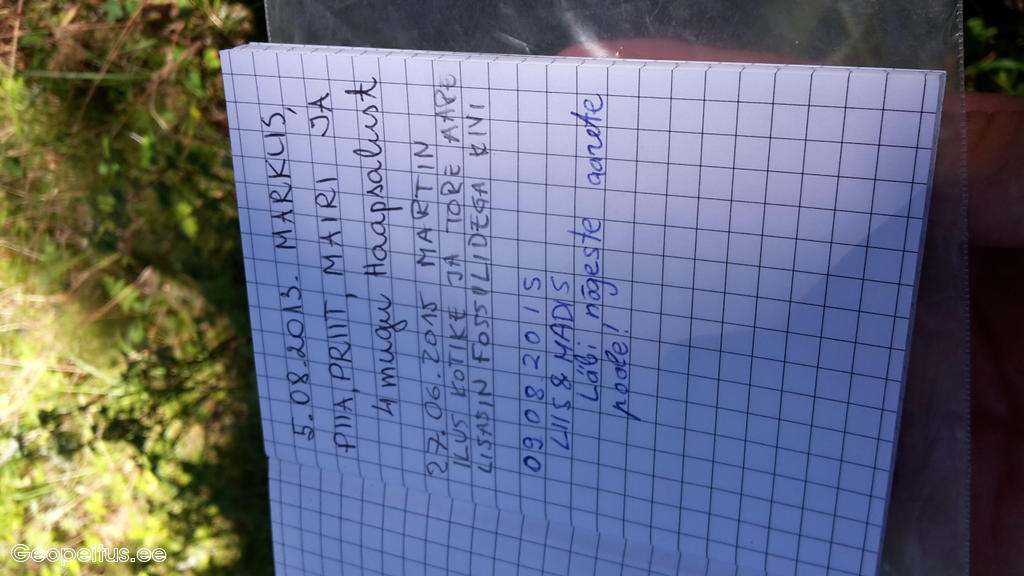 5.08.2013. MARKUS,
PIIA, PRIIT, MAIRI JA
4 mugu Haapsalust
27.06.2015 MARTIN
ILUS KOTIKE JA TORE AARE
LISASIN FOSSIILIDEGA KIVI
09.08.2015
LIIS & MADIS
Läbi nõgeste aarete
poole!
Geopeitus.ee